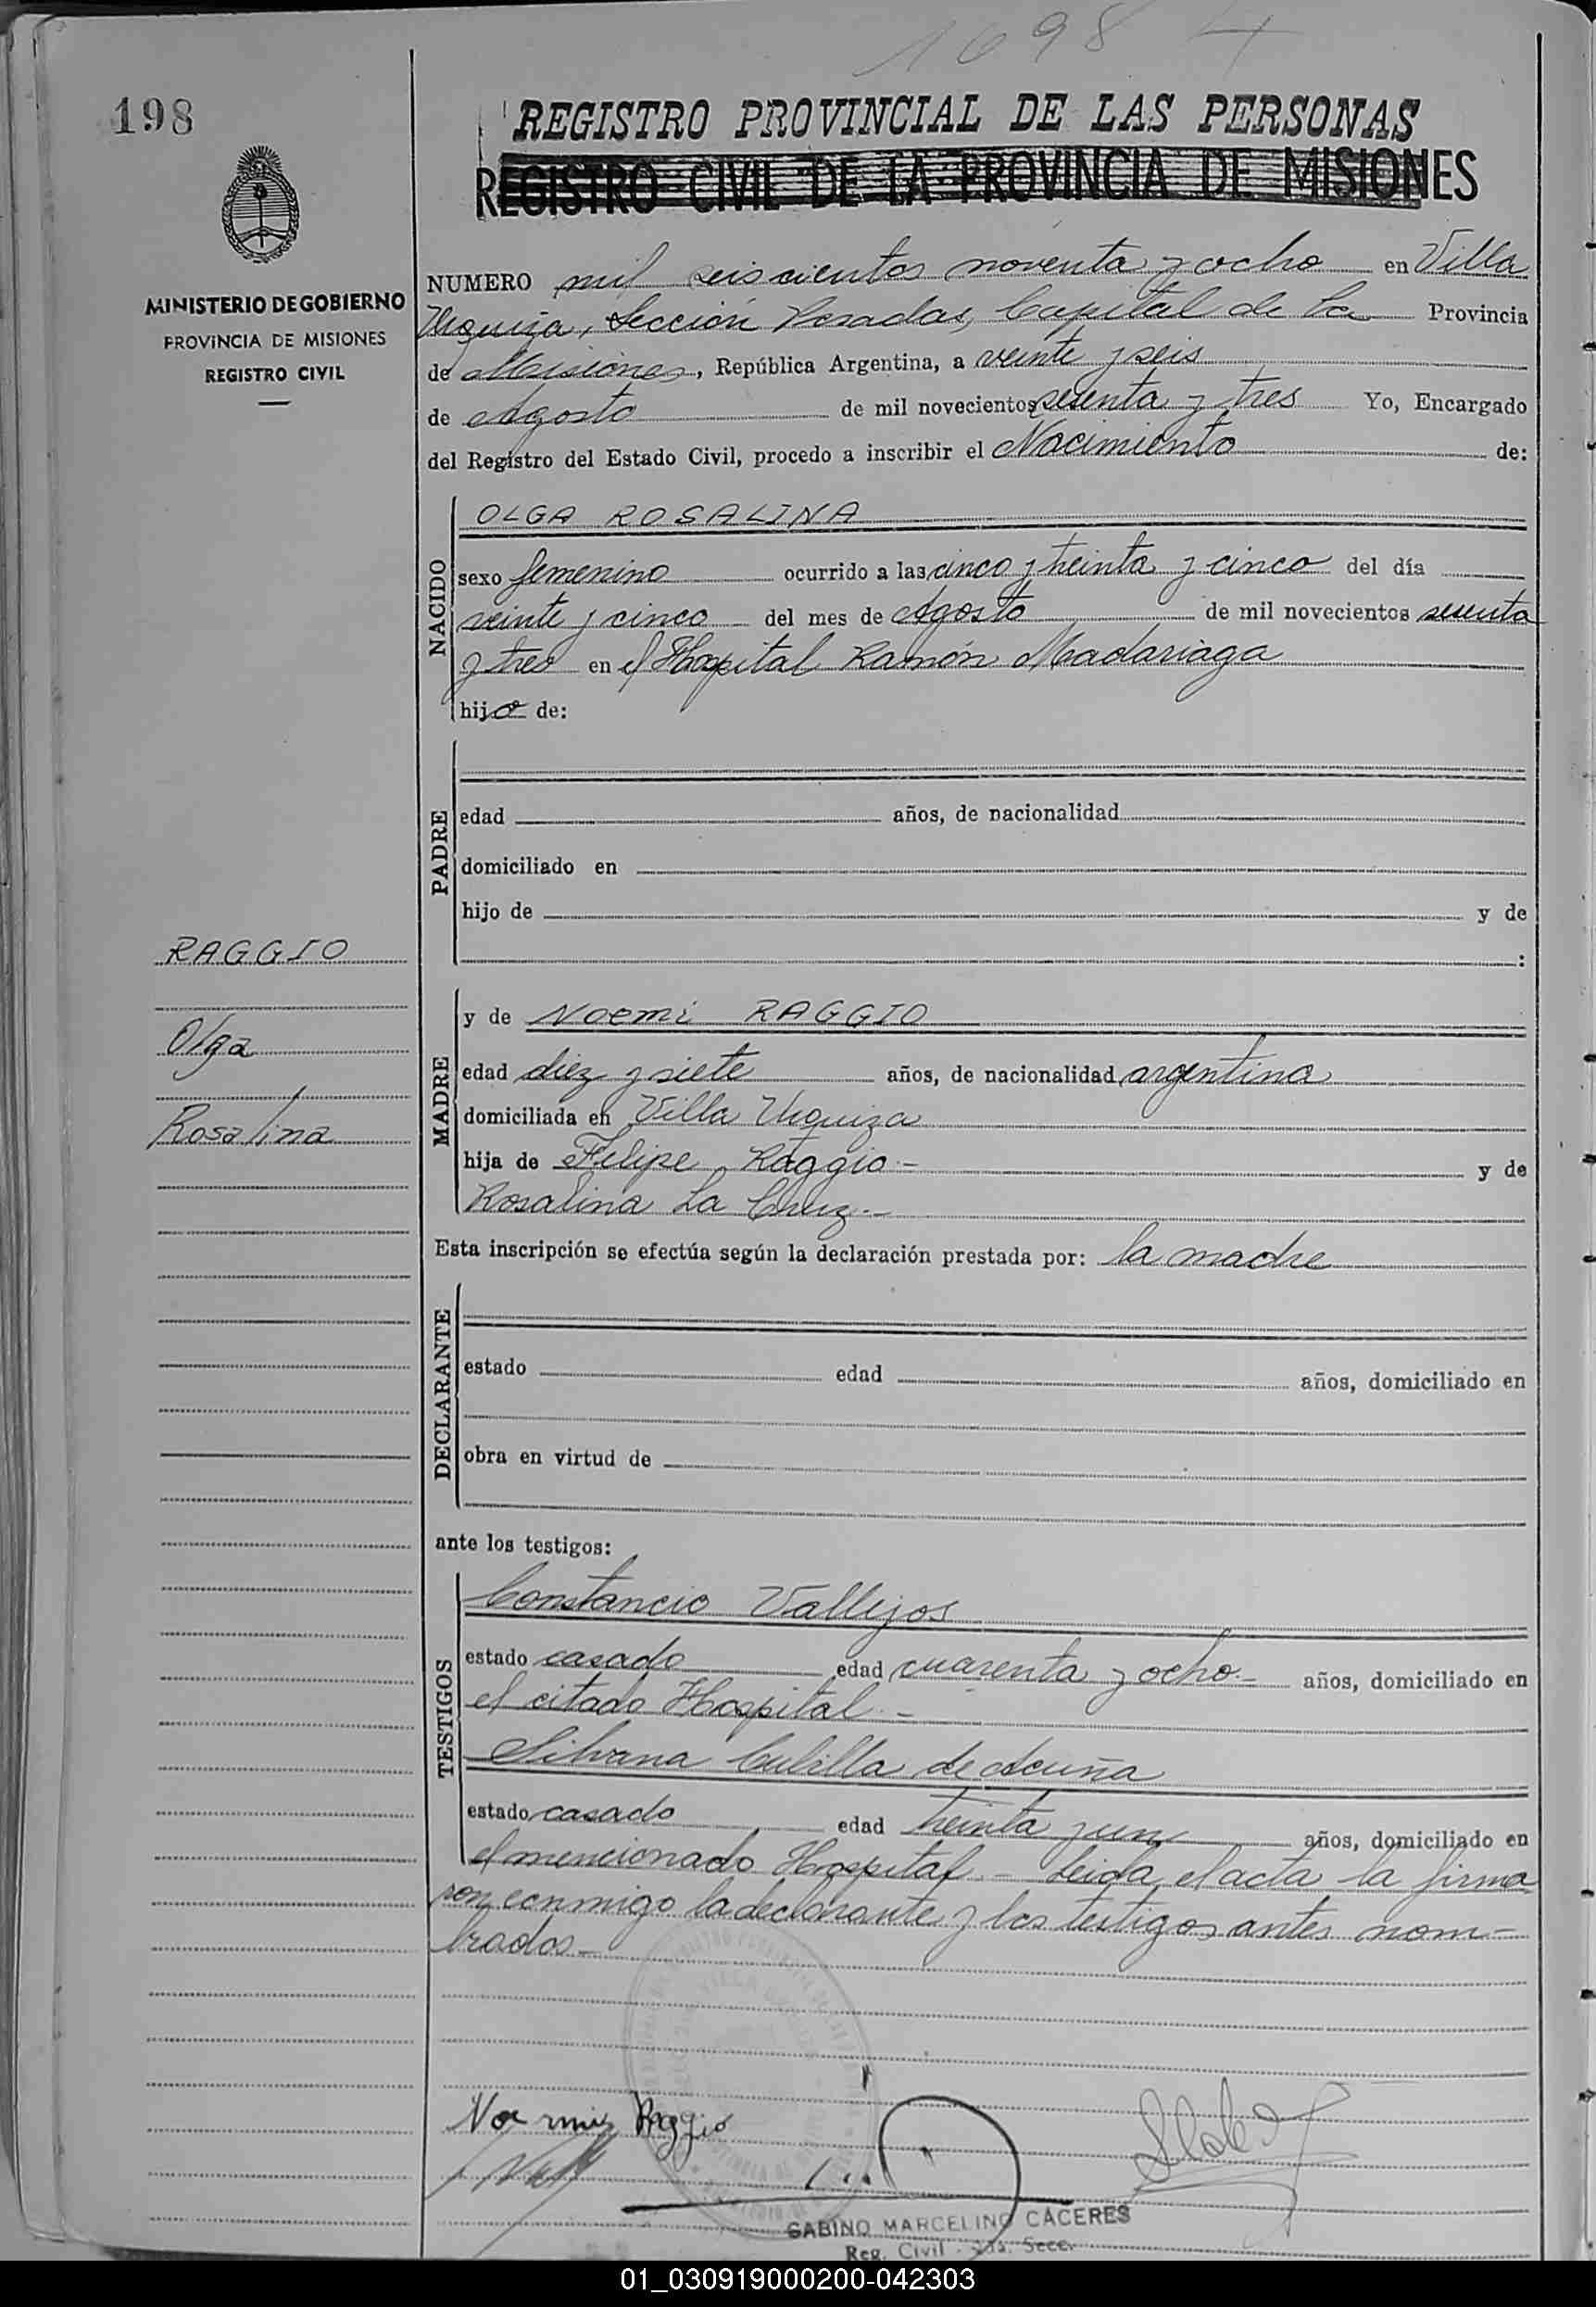 1698 4
198
REGISTRO PROVINCIAL DE LAS PERSONAS
REGISTRO CIVIL DE LA PROVINCIA DE MISIONES
MINISTERIO DE GOBIERNO
PROVINCIA DE MISIONES
REGISTRO CIVIL
NUMERO mil seiscientos noventa y ocho en Villa
Urquiza, Sección Posadas, Capital de la Provincia
de Misiones, República Argentina, a veinte y seis
de Agosto de mil novecientos sesenta y tres Yo, Encargado
del Registro del Estado Civil, procedo a inscribir el Nacimiento de:
NACIDO
OLGA ROSALINA
sexo femenino ocurrido a las cinco y treinta y cinco del día
veinte y cinco del mes de Agosto de mil novecientos sesenta
y tres en el Hospital Ramón Madariaga
hija de:
PADRE
edad años, de nacionalidad
domiciliado en
hijo de y de
:
RAGGIO
Olga
Rosalina
MADRE
y de Noemi RAGGIO
edad diez y siete años, de nacionalidad argentina
domiciliada en Villa Urquiza
hija de Felipe Raggio.- y de
Rosalina La Cruz.-
Esta inscripción se efectúa según la declaración prestada por: la madre
DECLARANTE
estado edad años, domiciliado en
obra en virtud de
ante los testigos:
TESTIGOS
Constancio Vallejos
estado casado edad cuarenta y ocho.- años, domiciliado en
el citado Hospital.-
Silvana Cubilla de Acuña
estado casado edad treinta y un años, domiciliado en
el mencionado Hospital.- Leida el acta la firma
ron conmigo la declarante y los testigos antes nom-
brados.-
Noemi Raggio
GABINO MARCELINO CACERES
Reg. Civil
01_030919000200-042303